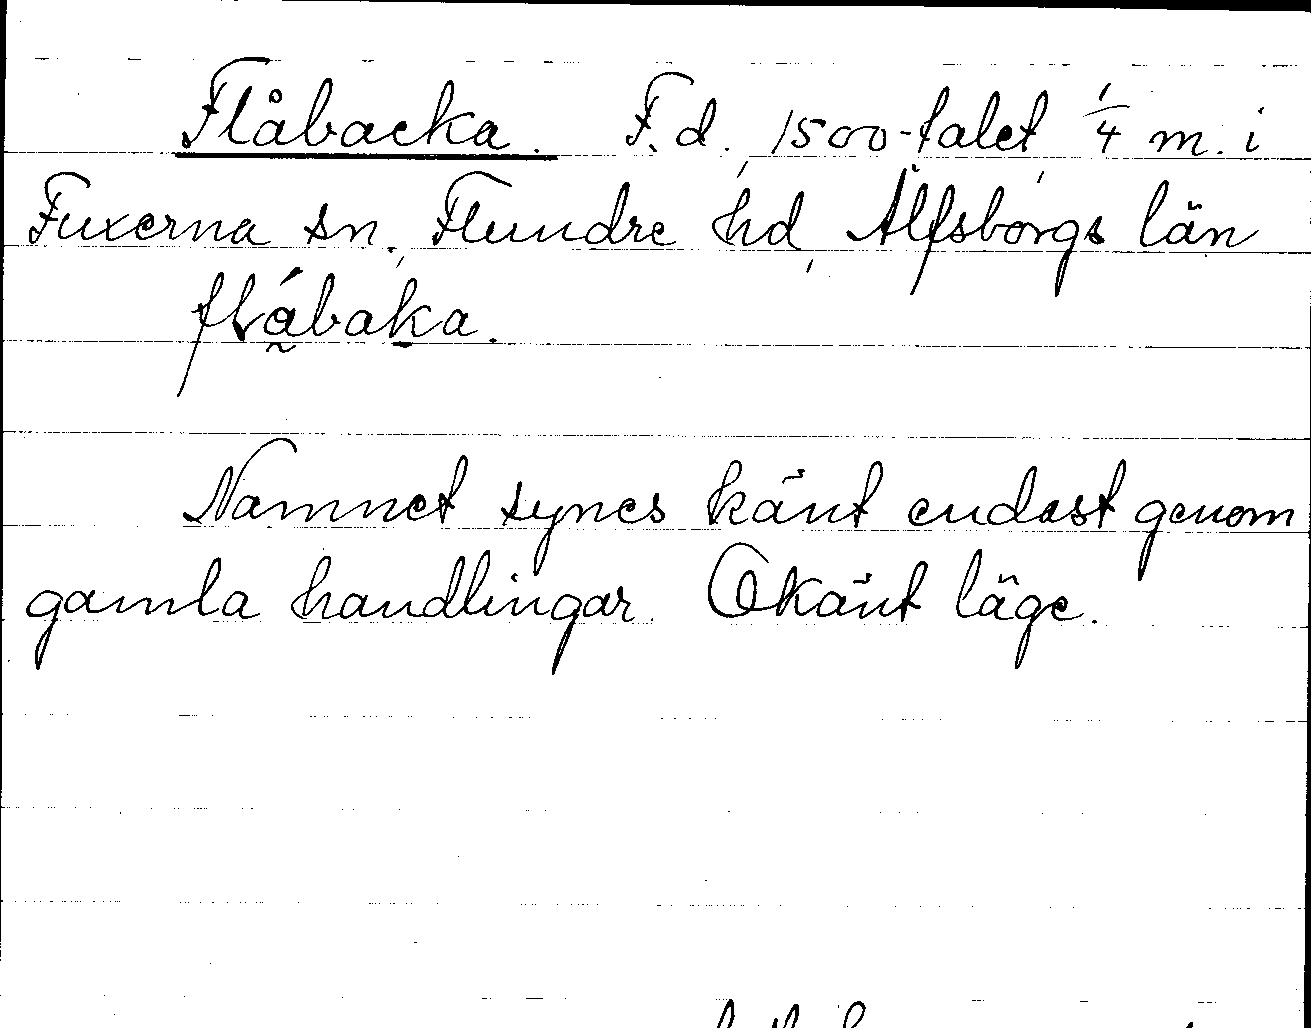 Flåbacka. F.d. 1500-talet, 1/4 m. i
Fuxerna sn., Flundre hd, Älfsborgs län
flábaka.
Namnet synes känt endast genom
gamla handlingar. Okänt läge.